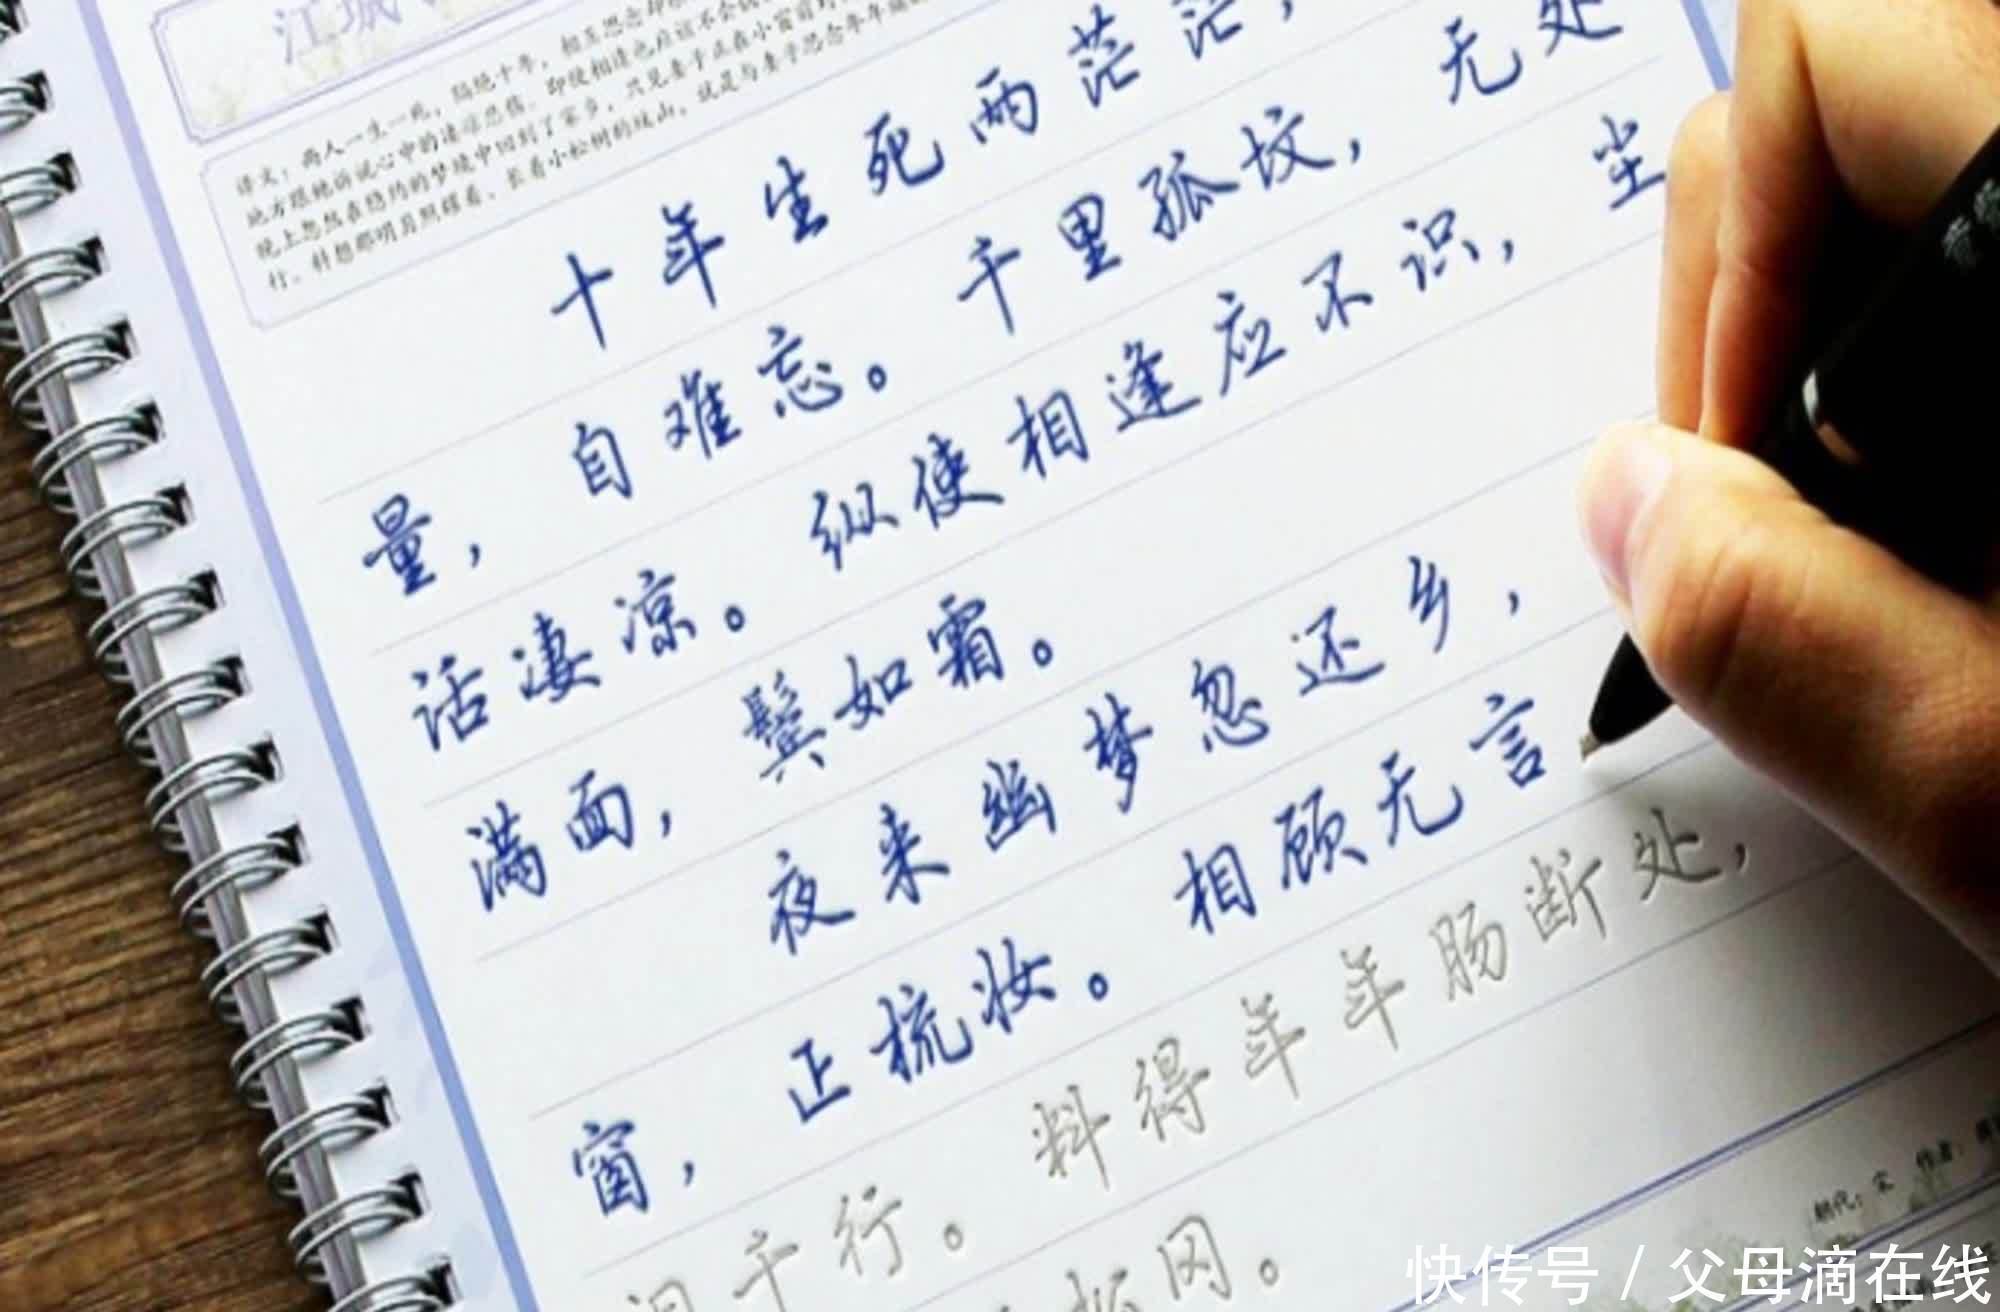 江城
译文：两人一生一死，隔绝十年，相互思念却
地方跟她诉说心中的凄凉悲伤。即使相逢也应该不会
晚上忽然在隐约的梦境中回到了家乡，只见妻子正在小窗前对
行。料想那明月照耀着、长着小松树的坟山，就是与妻子思念年年
十年生死两茫茫，
量，自难忘。千里孤坟，无处
话凄凉。纵使相逢应不识，尘
满面，鬓如霜。
夜来幽梦忽还乡，
窗，正梳妆。相顾无言
泪千行。料得年年肠断处，
松冈。
朝代：宋 作者：
快传号 / 父母滴在线